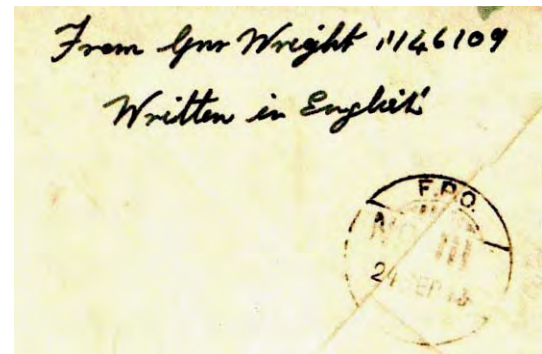 From Gnr Wright 1146109
Written in English
F.P.O.
24 SEP 43